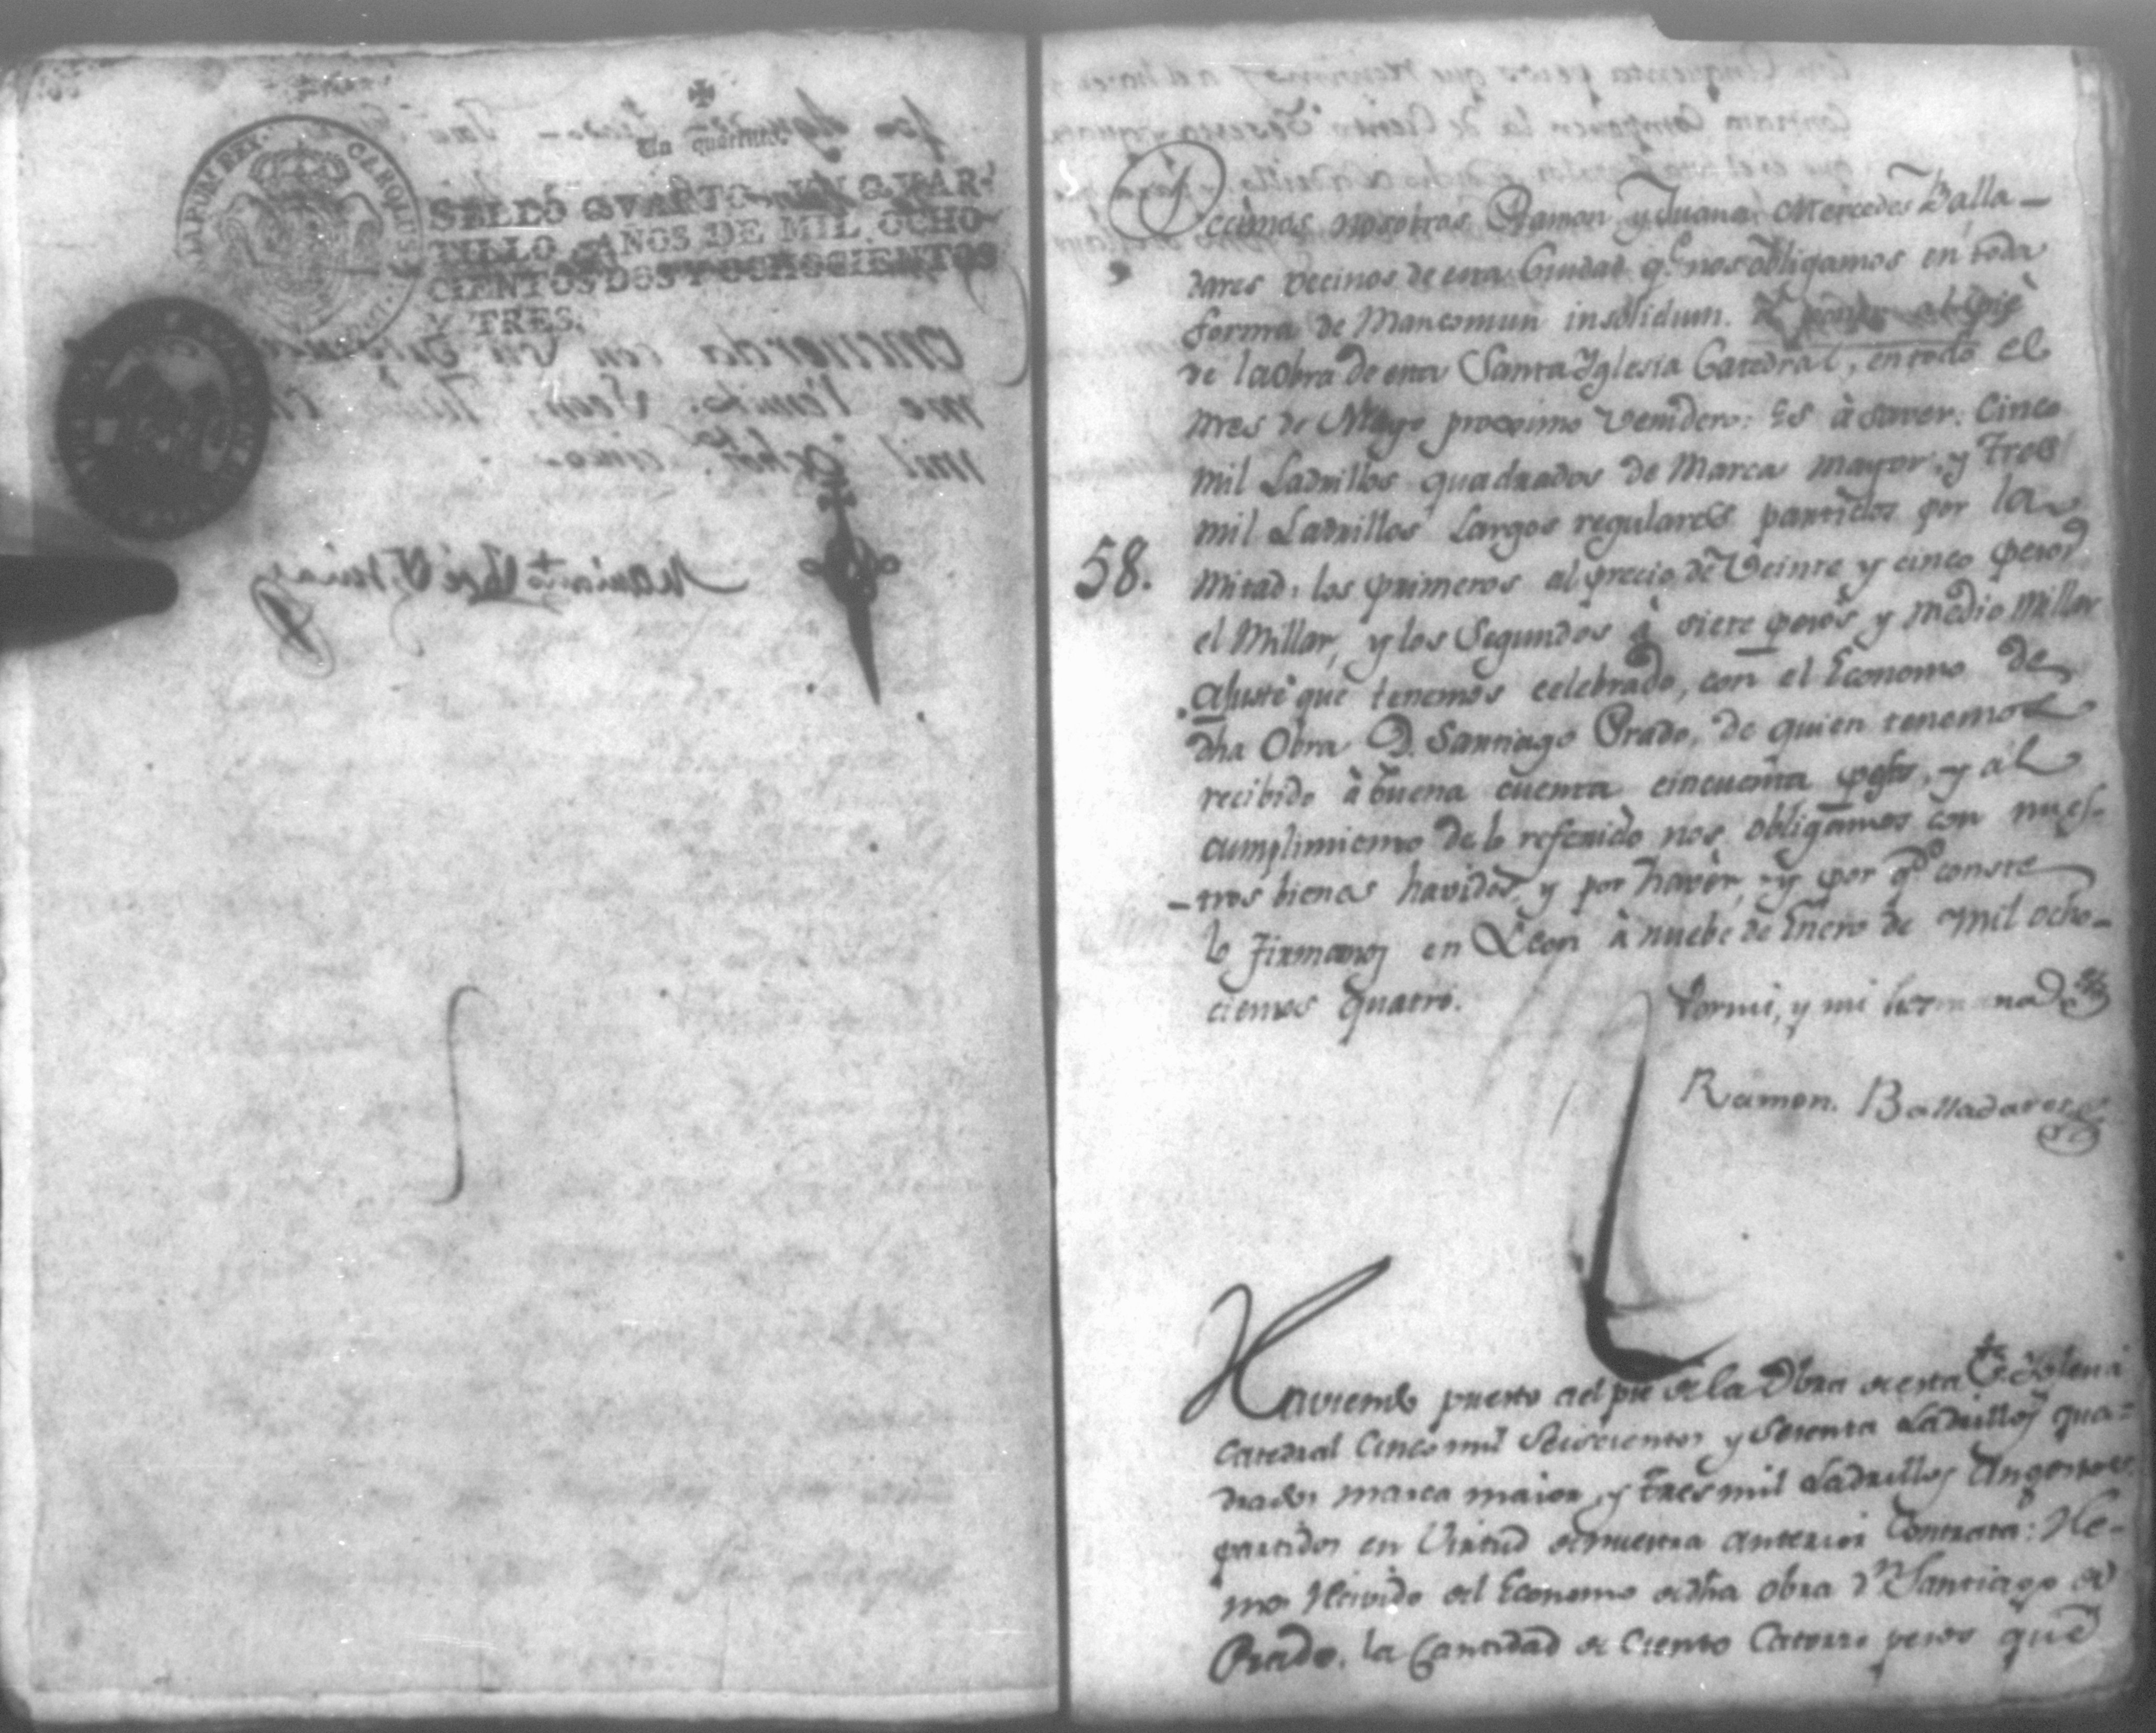 Un quartillo.
SELLO QVARTO, VN QVAR-
TILLO, AÑOS DE MIL OCHO-
CIENTOS DOS Y OCHOCIENTOS
Y TRES.
CAROLUS
Decimos nosotros Ramon y Juana Mercedes Balla-
dares vecinos de esta Ciudad qe. nos obligamos en toda
forma de Mancomun insolidum. a poner al pie
de la obra de esta Santa Yglesia Catedral, en todo el
mes de Mayo proximo venidero: Es à saver: Cinco
mil Ladrillos quadrados de Marca mayor, y tres
mil Ladrillos Largos regulares partidos por la
58.
mitad: los primeros al precio de Veinte y cinco pesos
el Millar, y los Segundos à siete pesos y medio Millar
ajuste que tenemos celebrado, con el Economo de
dha Obra D. Santiago Prado, de quien tenemos
recibido à buena cuenta cincuenta ps., y al
cumplimiento de lo referido nos obligamos con nues-
tros bienes havidos, y por haver, y por qe. conste
lo firmamos en Leon à nuebe de Enero de mil ocho-
cientos quatro.
Por mi, y mi hermana Da
Ramon. Balladares
Haviendo puesto al pie de la Obra de esta Sta. Yglecia
Catedral Cinco mil Seiscientos y setenta Ladrillos qua-
drados marca maior, y tres mil Ladrillos Angostos
partidos en Virtud de nuestra anterior Contrata: He-
mos Recivido del Economo de dha obra Dn. Santiago de
Prado, la Cantidad de Ciento Catorze pesos que